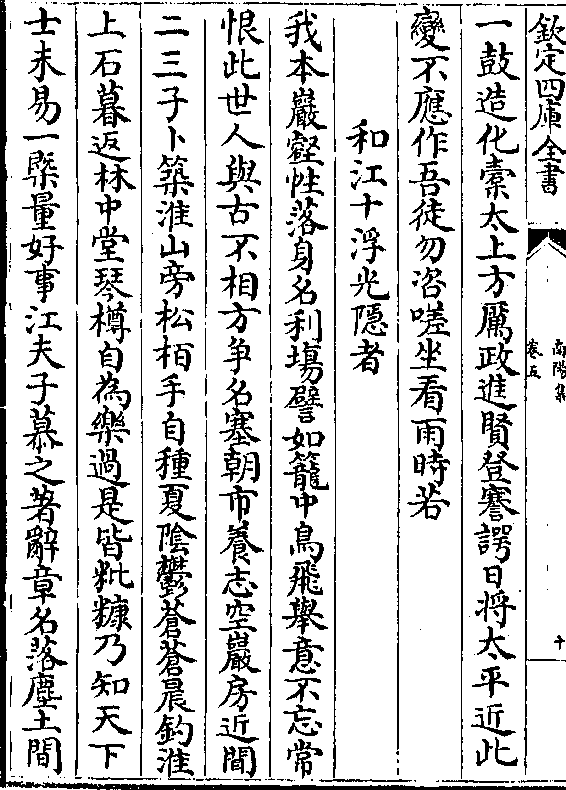 欽定四庫全書
南陽集
卷五
十
一鼓造化橐太上方厲政進賢登謇諤日将太平近此
變不應作吾徒勿咨嗟坐看雨時若
和江十浮光隱者
我本巖壑性落身名利塲譬如籠中鳥飛舉意不忘常
恨此世人與古不相方争名塞朝市養志空巖房近聞
二三子卜築淮山旁松栢手自種夏陰鬱蒼蒼晨釣淮
上石暮返林中堂琴樽自為樂過是皆粃糠乃知天下
士未易一槩量好事江夫子慕之著辭章名落塵土間